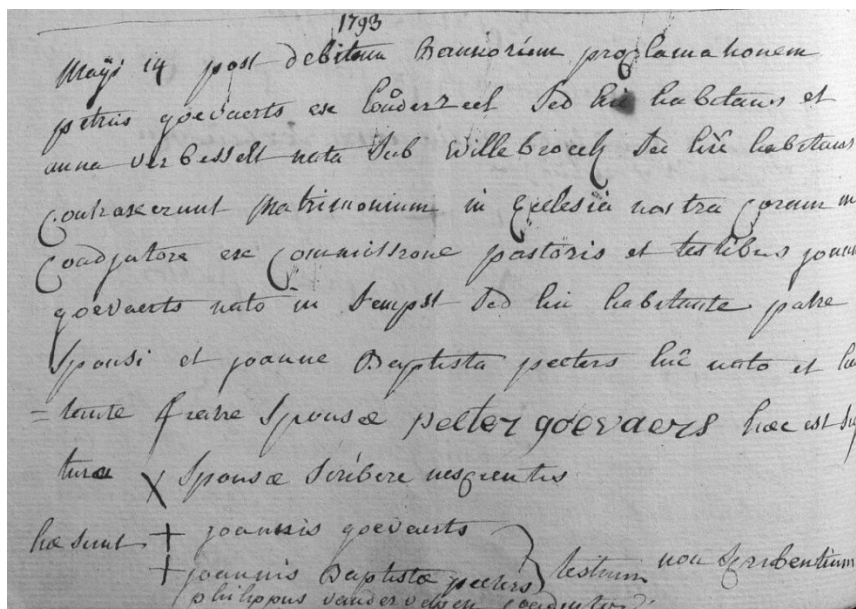 1793
Maÿi 14 post debitam Bannorium proclamationem
petrus goevaerts ex londerzeel sed hic habitans et
anna verbesselt nata sub willebroeck sed hic habitans
Contraxerunt Matrimonium in Ecclesia nostra Coram m
Coadjutore ex Commissione pastoris et testibus joann
goevaerts nato in Sempst sed hic habitante patre
Sponsi et joanne Baptista peeters hic nato et ha
= tante fratre Sponsæ peeter goevaers hæc est sig
tura X Sponsæ Scribere nescientis
hæ sunt + joannis goevaerts
+ joannis Baptistæ peeters testium non scribentium
philippus vander coadjutor